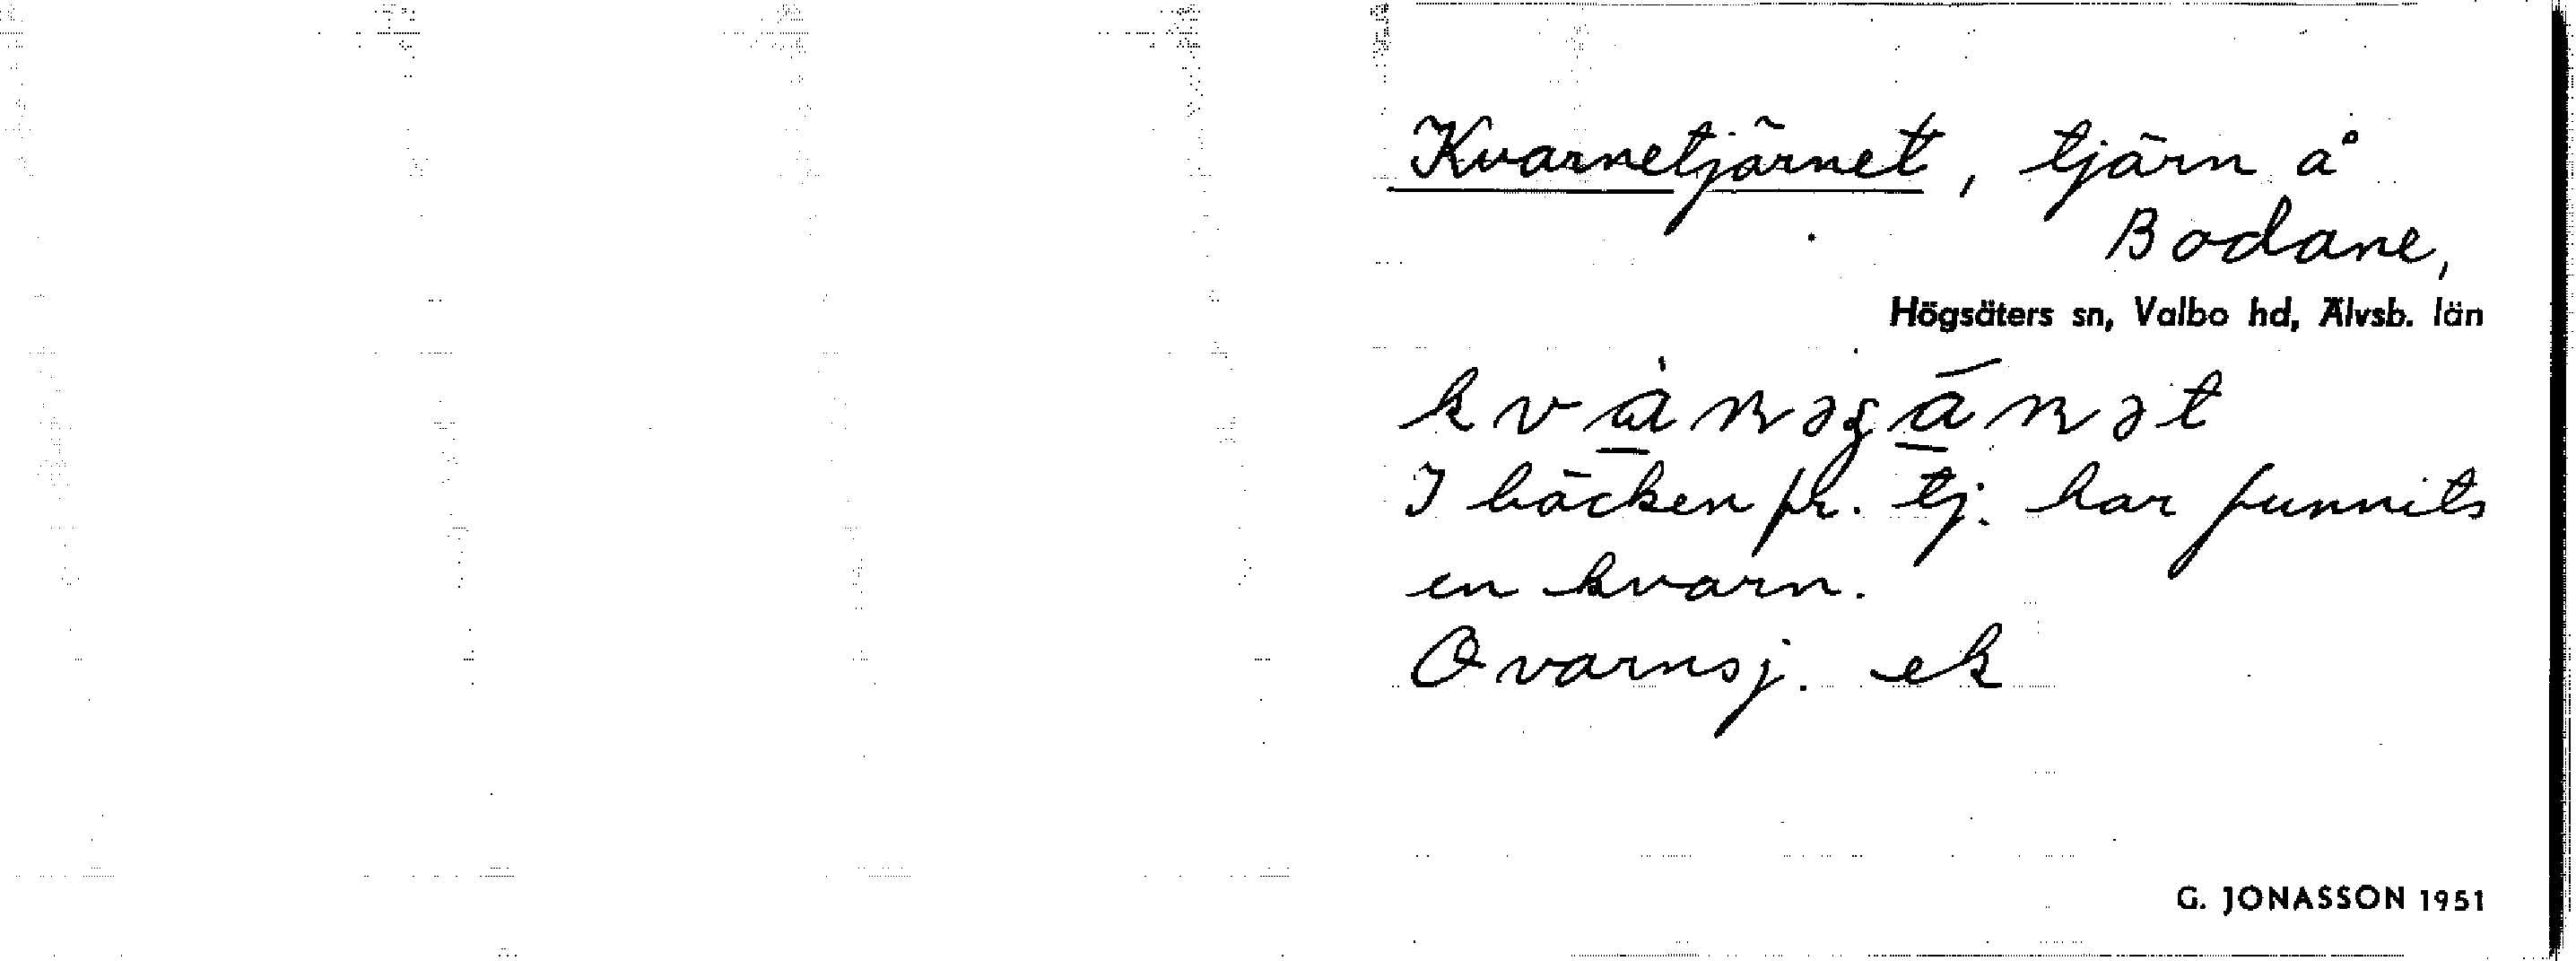 Kvarnetjärnet, tjärn å
Bodane,
Högsäters sn, Valbo hd, Älvsb. län
I bäcken fr. tj. har funnits
en kvarn.
Qvarnsj. ek
G. JONASSON 1951